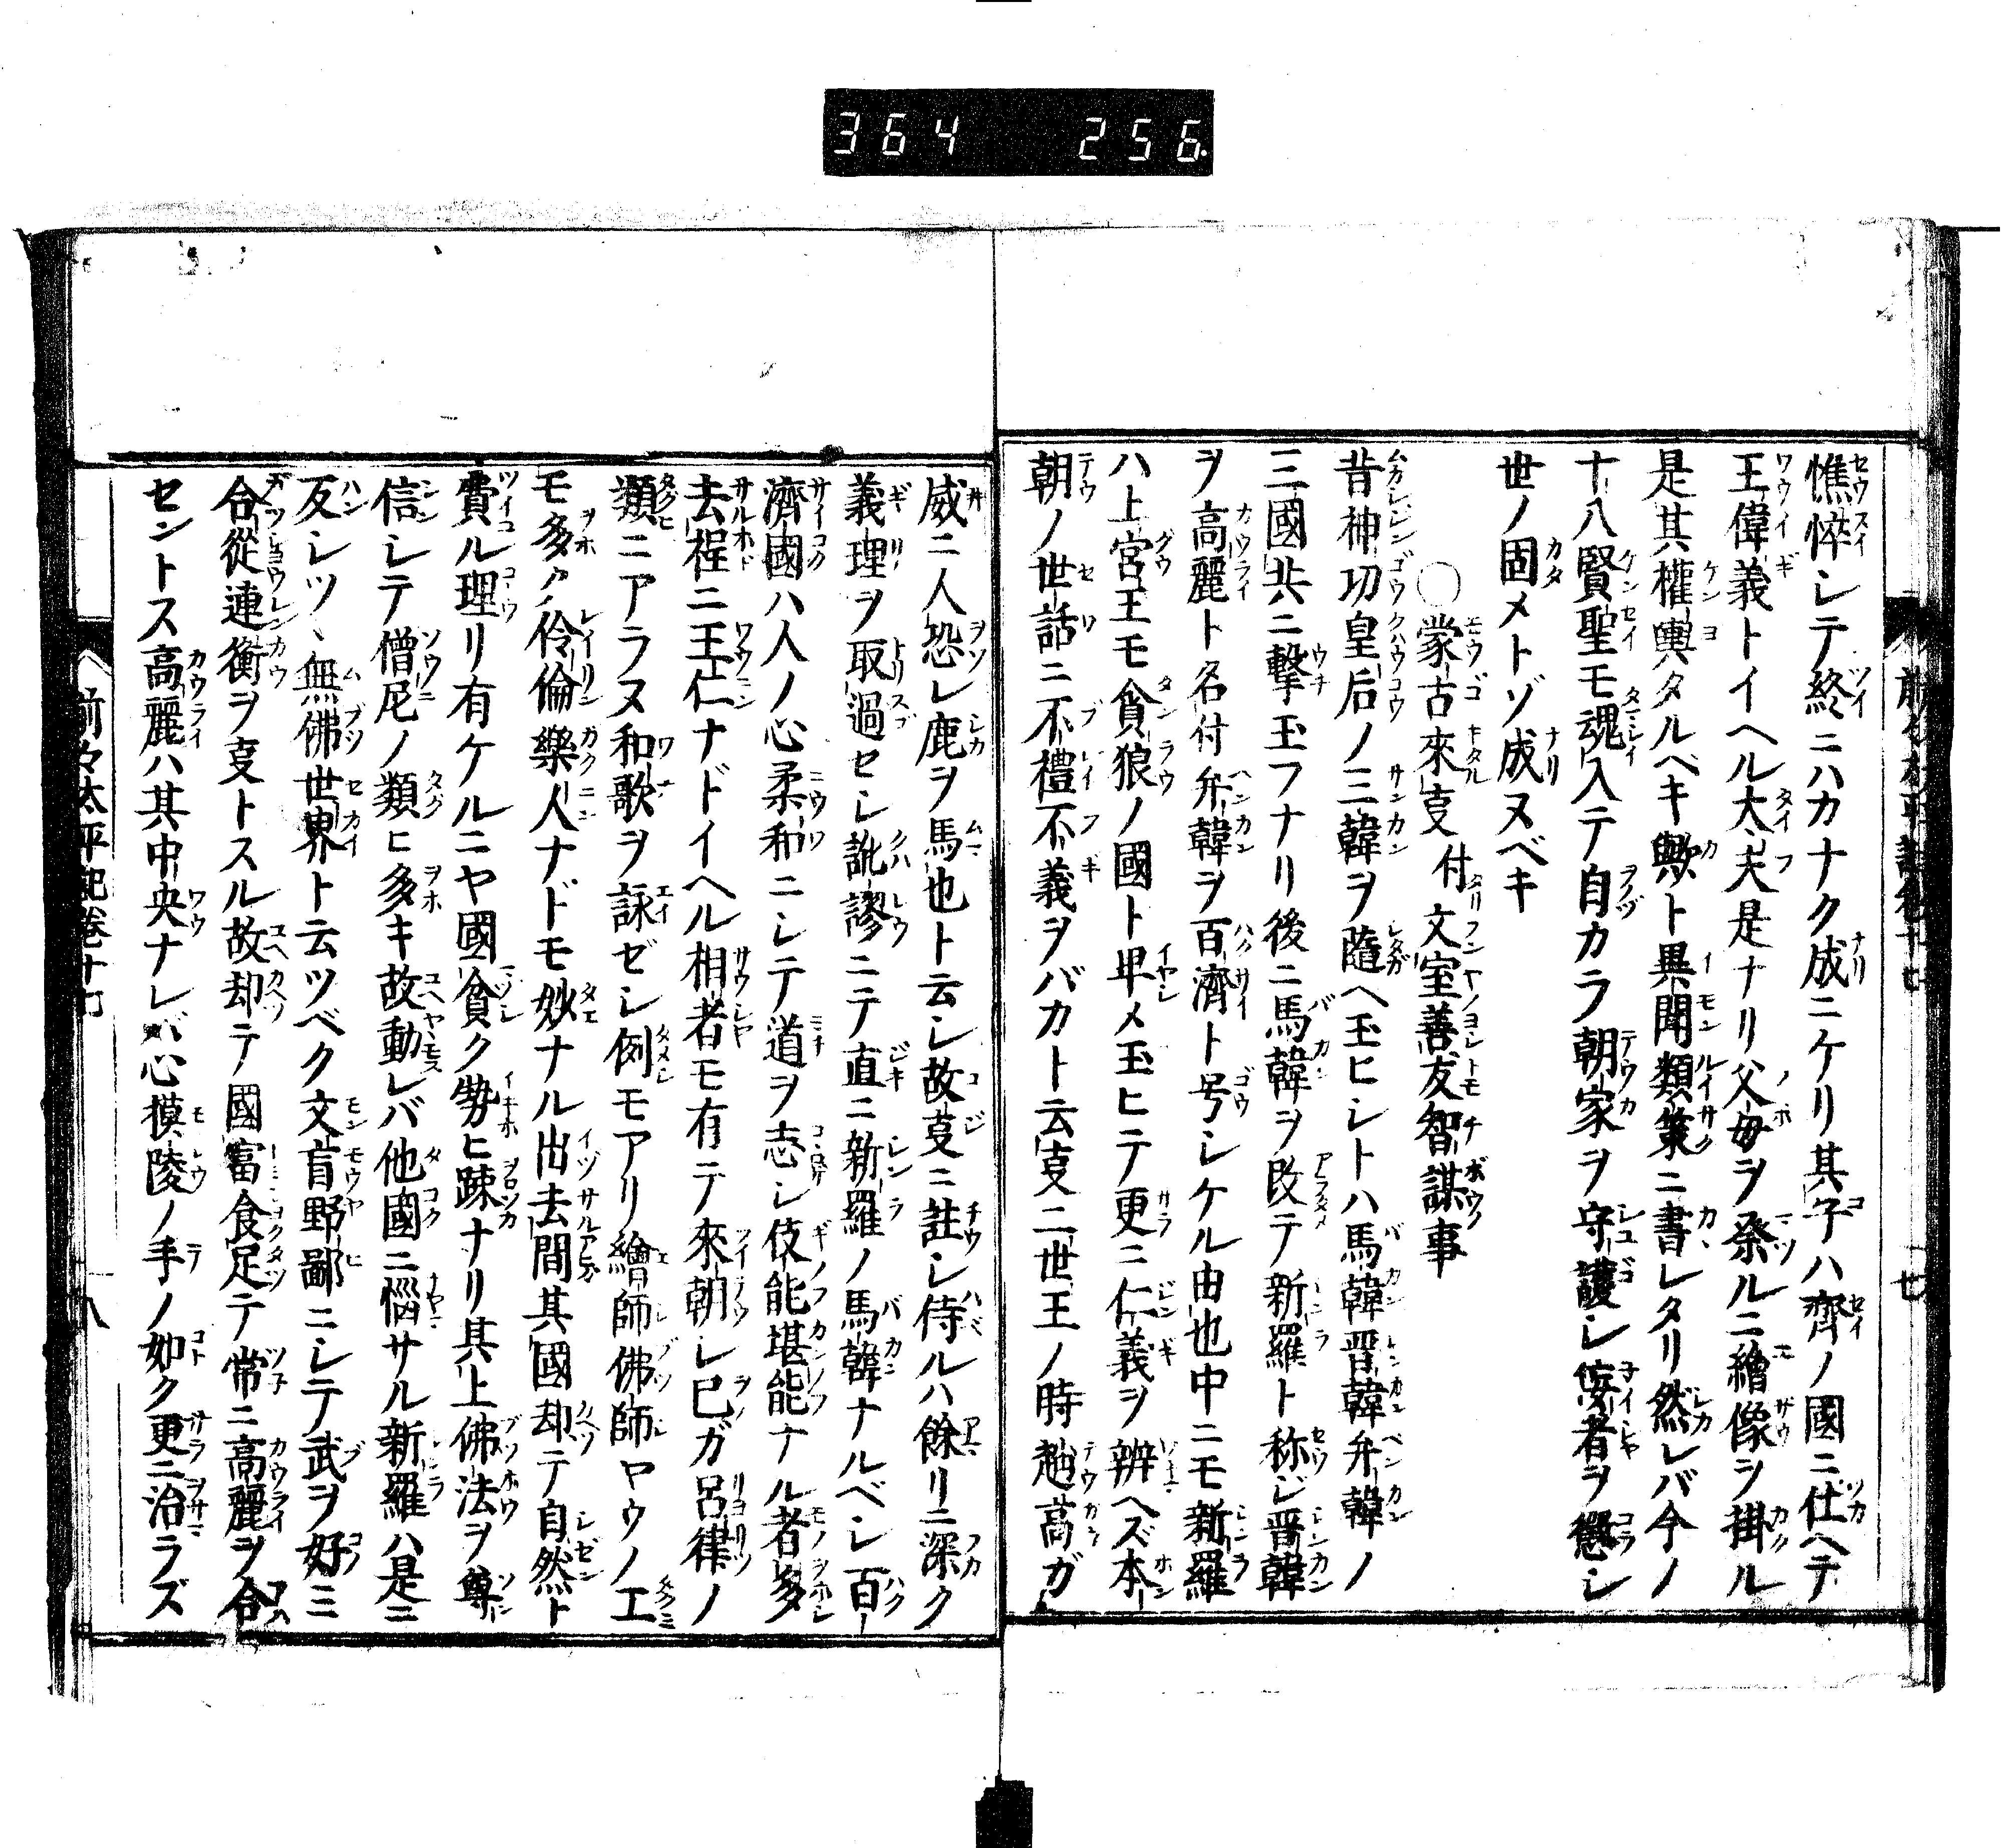 364 256
憔悴シテ終ニハカナク成ニケリ其子ハ齊ノ國ニ仕ヘテ
王偉義トイヘル大夫是ナリ父母ヲ祭ルニ繪像ヲ掛ル
是其權輿タルヘキ歟ト異聞類策ニ書レタリ然レバ今ノ
十八賢聖モ魂入テ自カラ朝家ヲ守護シ侫者ヲ懲シ
世ノ固メトゾ成ヌベキ
○蒙古來叓付文室善友智謀事
昔神功皇后ノ三韓ヲ隨ヘ玉ヒシトハ馬韓晋韓弁韓ノ
三國共ニ撃玉フナリ後ニ馬韓ヲ改テ新羅ト称ジ晋韓
ヲ高麗ト名付弁韓ヲ百濟ト号シケル由也中ニモ新羅
ハ上宮王モ貪狼ノ國ト卑メ玉ヒテ更ニ仁義ヲ辨ヘズ本
朝ノ世話ニ不禮不義ヲバカト云叓二世王ノ時趙高ガ
威ニ人恐レ鹿ヲ馬也ト云シ故叓ニ註シ侍ルハ餘リニ深ク
義理ヲ取過セシ訛謬ニテ直ニ新羅ノ馬韓ナルベシ百
濟國ハ人ノ心柔和ニシテ道ヲ志シ伎能堪能ナル者多シ
去程ニ王仁ナドイヘル相者モ有テ來朝シ已ガ呂律ノ
類ニアラヌ和歌ヲ詠ゼシ例モアリ繪師佛師ヤウノ工
モ多ク伶倫樂人ナドモ妙ナル出去間其國却テ自然ト
費ル理リ有ケルニヤ國貧ク勢ヒ踈ナリ其上佛法ヲ尊
信シテ僧尼ノ類ヒ多キ故動レバ他國ニ惱サル新羅ハ是ニ
反シツヽ無佛世界ト云ツベク文盲野鄙ニシテ武ヲ好ミ
合從連衡ヲ叓トスル故却テ國富食足テ常ニ高麗ヲ合
セントス高麗ハ其中央ナレバ心摸陵ノ手ノ如ク更ニ治ラズ
前々太平記卷十七
八